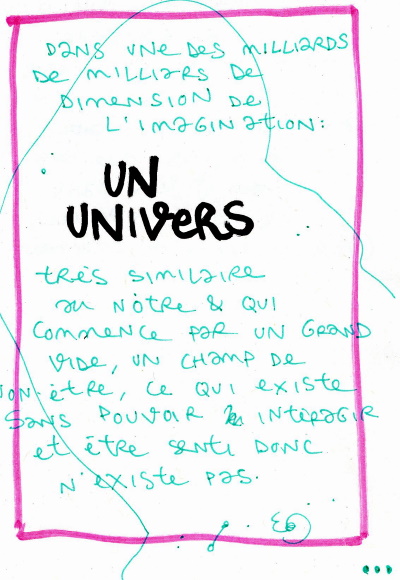 DANS UNE DES MILLIARDS
DE MILLIERS DE
DIMENSION DE
L'IMAGINATION:
UN
UNIVERS
TRÈS SIMILAIRE
AU NÔTRE & QUI
COMMENCE PAR UN GRAND
VIDE, UN CHAMP DE
NON-ÊTRE, CE QUI EXISTE
SANS POUVOIR INTERAGIR
ET ÊTRE SENTI DONC
N'EXISTE PAS.
...